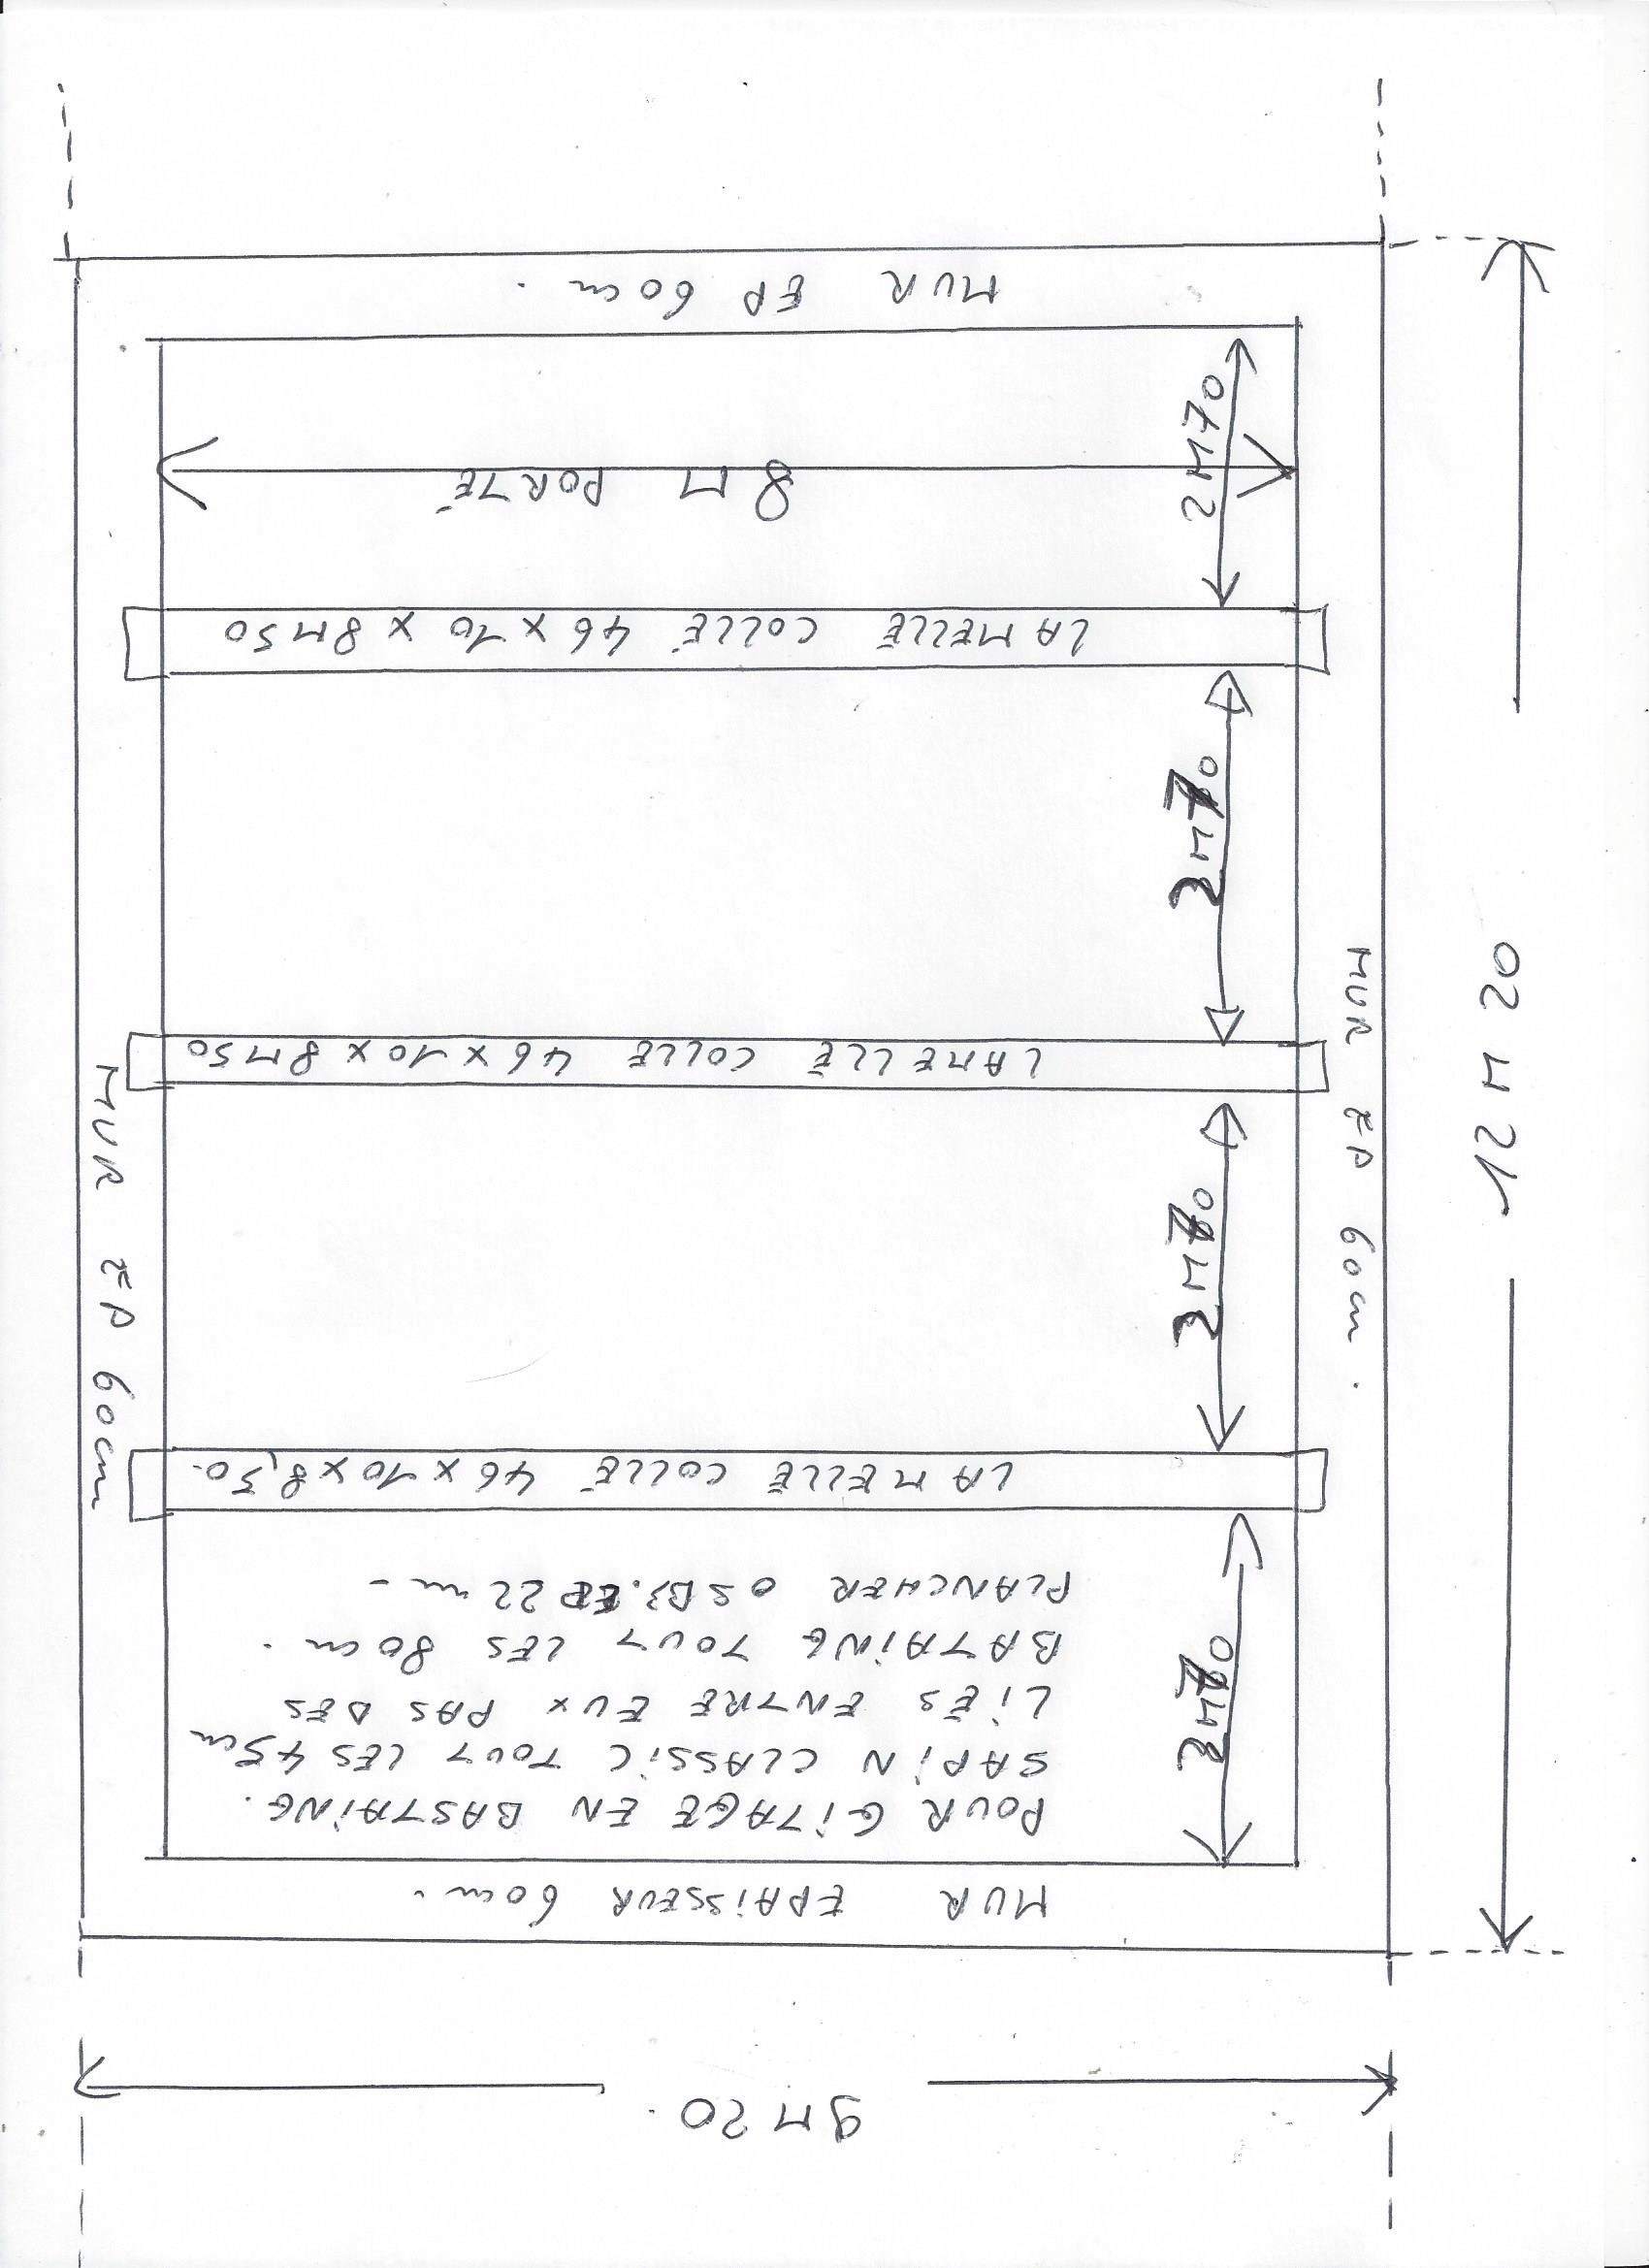 9M20.
MUR EPAISSEUR 60cm.
POUR GITAGE EN BASTAING.
SAPIN CLASSIC TOUT LES 45cm
LIÉS ENTRE EUX PAS DES
BATAING TOUT LES 80cm.
PLANCHER OSB3.EP 22m-
LAMELLÉ COLLÉ 46x10x8,50.
LAMELLÉ COLLÉ 46x10x8M50
LAMELLÉ COLLÉ 46x10x8M50
8M PORTÉ
MUR EP 60cm.
2M70
2M70
2M70
2M70
MUR EP 60cm
MUR EP 60cm.
12M20